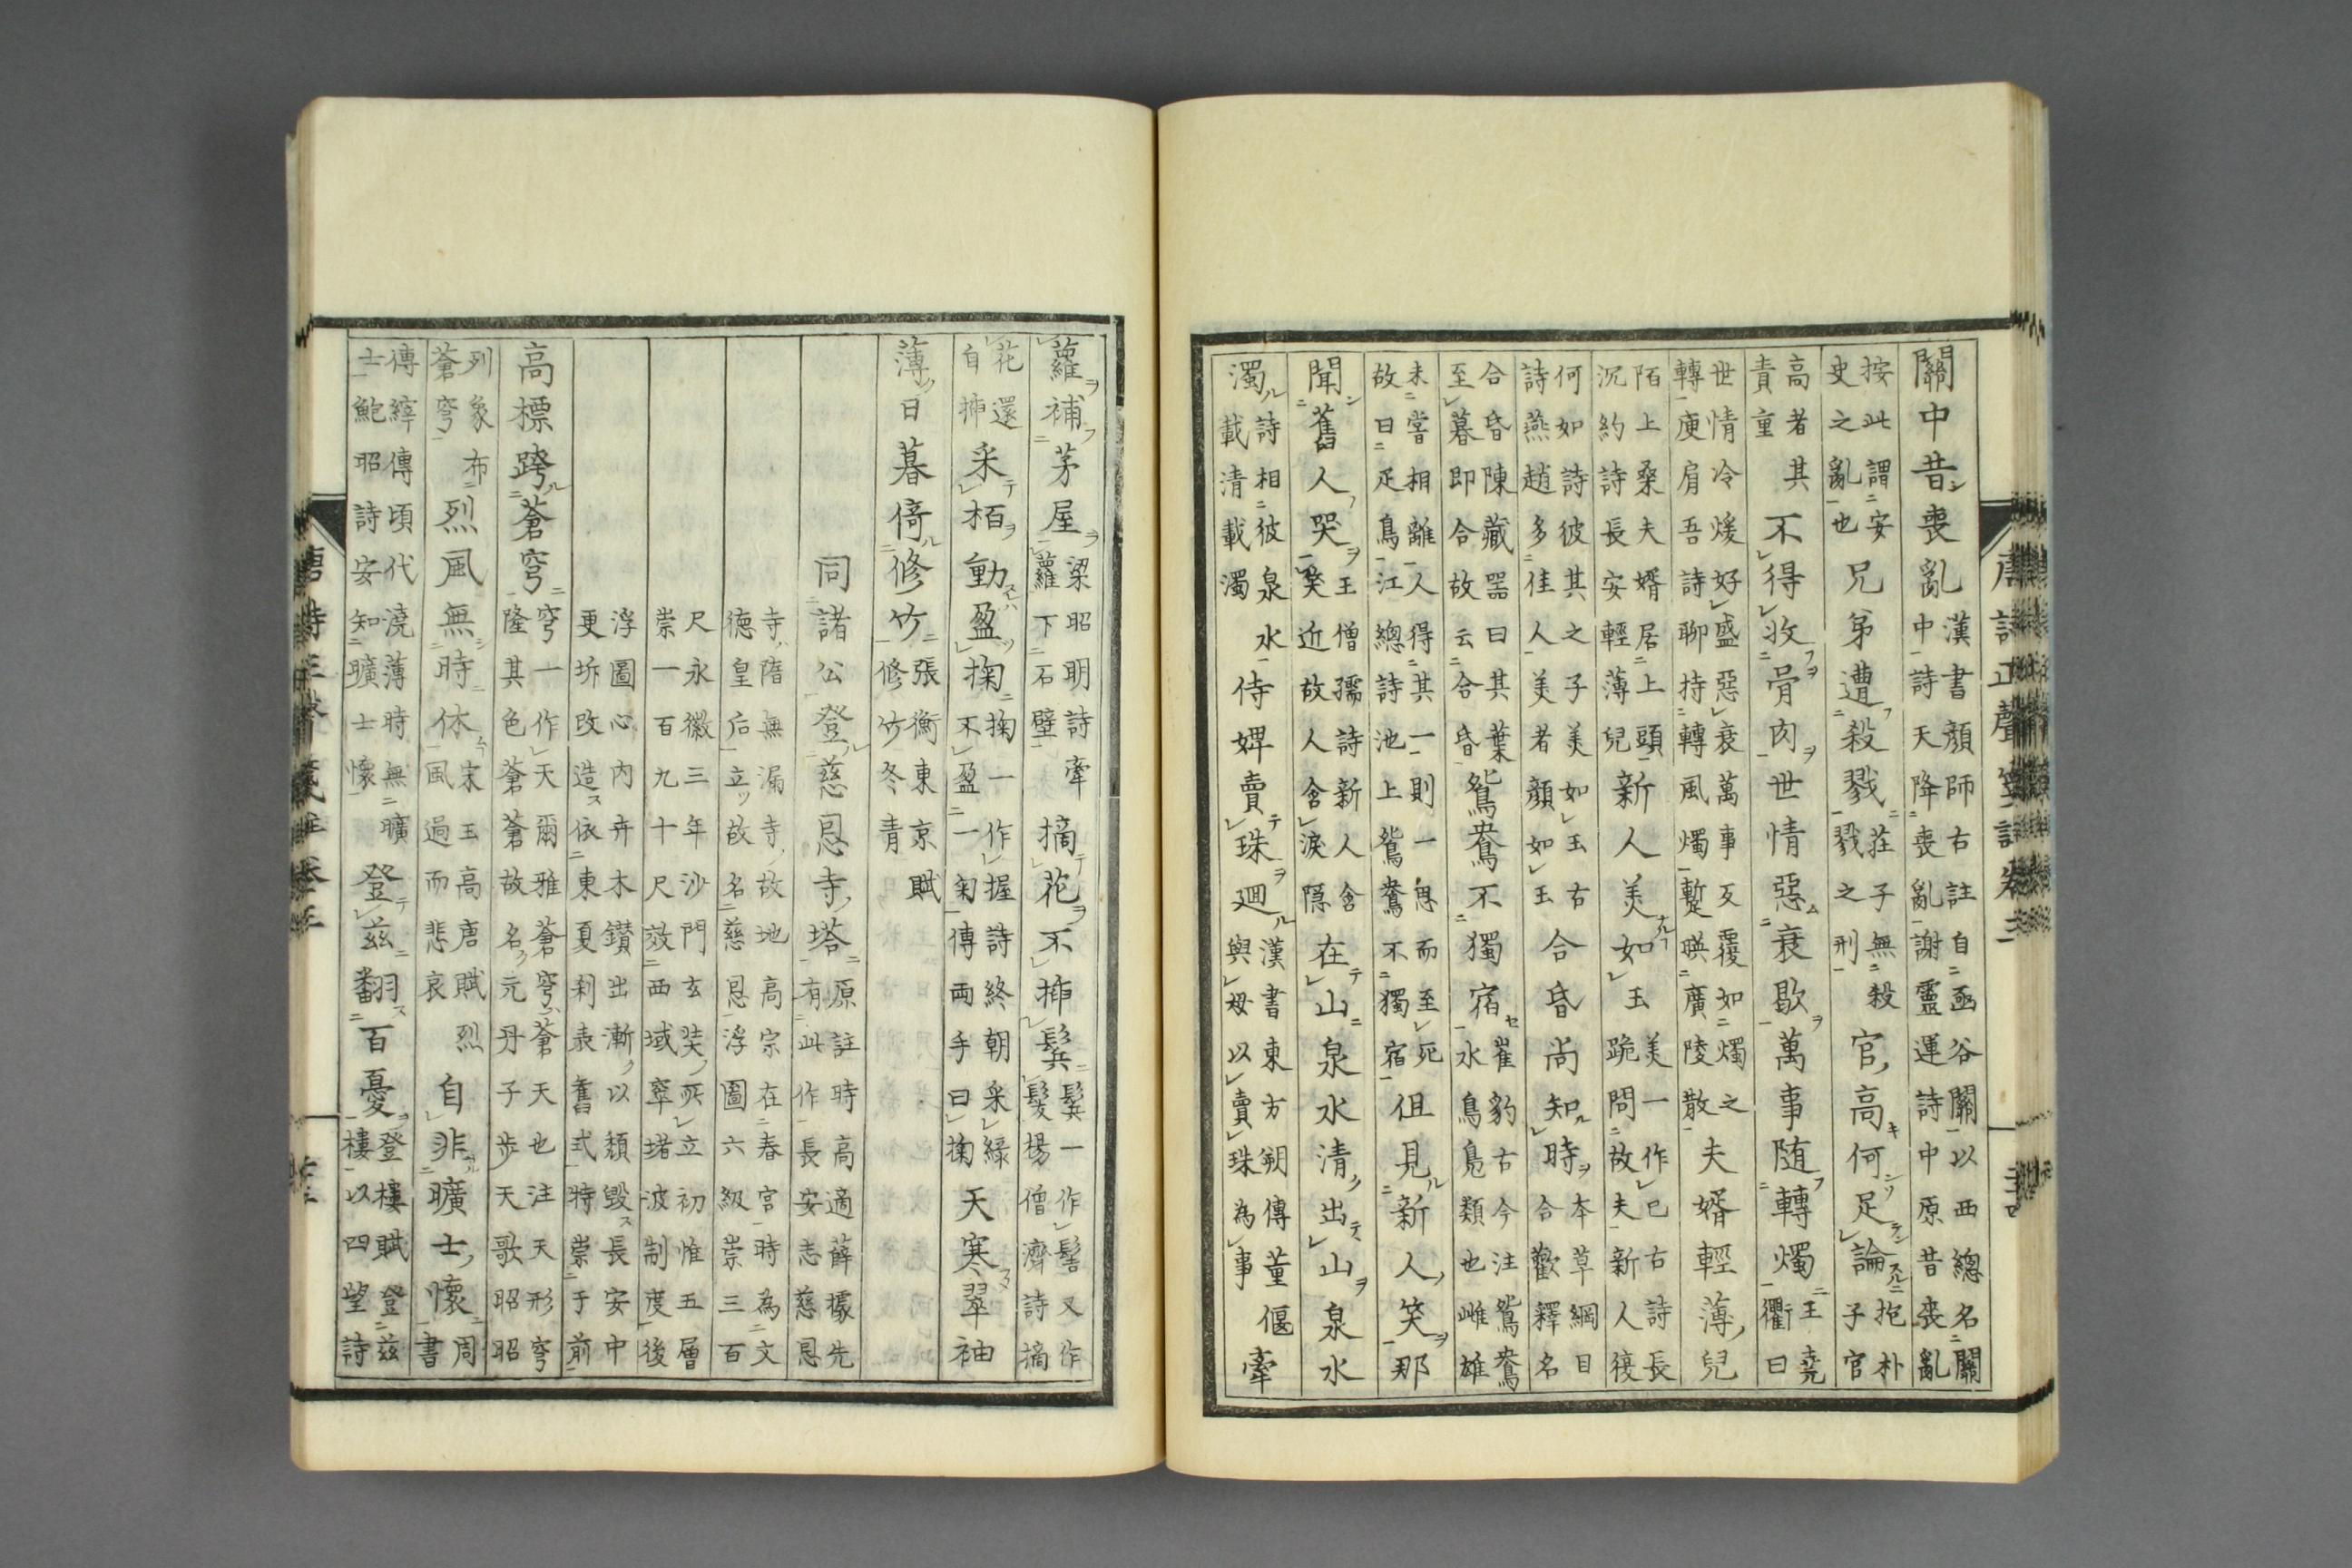 唐詩正聲箋註卷三
關中昔喪亂漢書顔師古註自函谷關以西總名關中詩天降喪亂謝靈運詩中原昔喪亂
按此謂安史之亂也兄弟遭殺戮莊子無殺戮之刑官高何足論抱朴子官
高者其責重不得收骨肉世情惡衰歇萬事隨轉燭王堯衢曰
世情冷煖好盛惡衰萬事反覆如燭之轉庾肩吾詩聊持轉風燭蹔暎廣陵散夫婿輕薄兒
陌上桑夫婿居上頭沉約詩長安輕薄兒新人美如玉美一作已古詩長跪問故夫新人復
何如詩彼其之子美如玉古詩燕趙多佳人美者顔如玉合昏尚知時本草綱目合歡釋名
合昏陳藏器曰其葉至暮即合故云合昏鴛鴦不獨宿崔豹古今注鴛鴦水鳥鳧類也雌雄
未嘗相離人得其一則一思而至死故曰疋鳥江總詩池上鴛鴦不獨宿但見新人笑那
聞舊人哭王僧孺詩新人含笑近故人含淚隱在山泉水清出山泉水
濁詩相彼泉水載清載濁侍婢賣珠迴漢書東方朔傳董偃與母以賣珠為事牽
蘿補茅屋梁昭明詩牽蘿下石壁摘花不插鬂鬂一作髻又作髮楊僧濟詩摘
花還自插采栢動盈掬掬一作握詩終朝采綠不盈一匊傳兩手曰掬天寒翠袖
薄日暮倚修竹張衡東京賦修竹冬青
同諸公登慈恩寺塔原註時高適薛據先有此作長安志慈恩
寺隋無漏寺故地高宗在春宮時為文德皇后立故名慈恩浮圖六級崇三百
尺永徽三年沙門玄奘所立初惟五層崇一百九十尺效西域窣堵波制度後
浮圖心內卉木鑚出漸以頹毀長安中更坼改造依東夏刹表舊式特崇于前
高標跨蒼穹穹一作天爾雅蒼穹蒼天也注天形穹隆其色蒼蒼故名元丹子步天歌昭昭
列象布蒼穹烈風無時休宋玉高唐賦烈風過而悲哀自非曠士懷周書
傳縡傳頃代澆薄時無曠士鮑昭詩安知曠士懷登茲翻百憂登樓賦登茲樓以四望詩